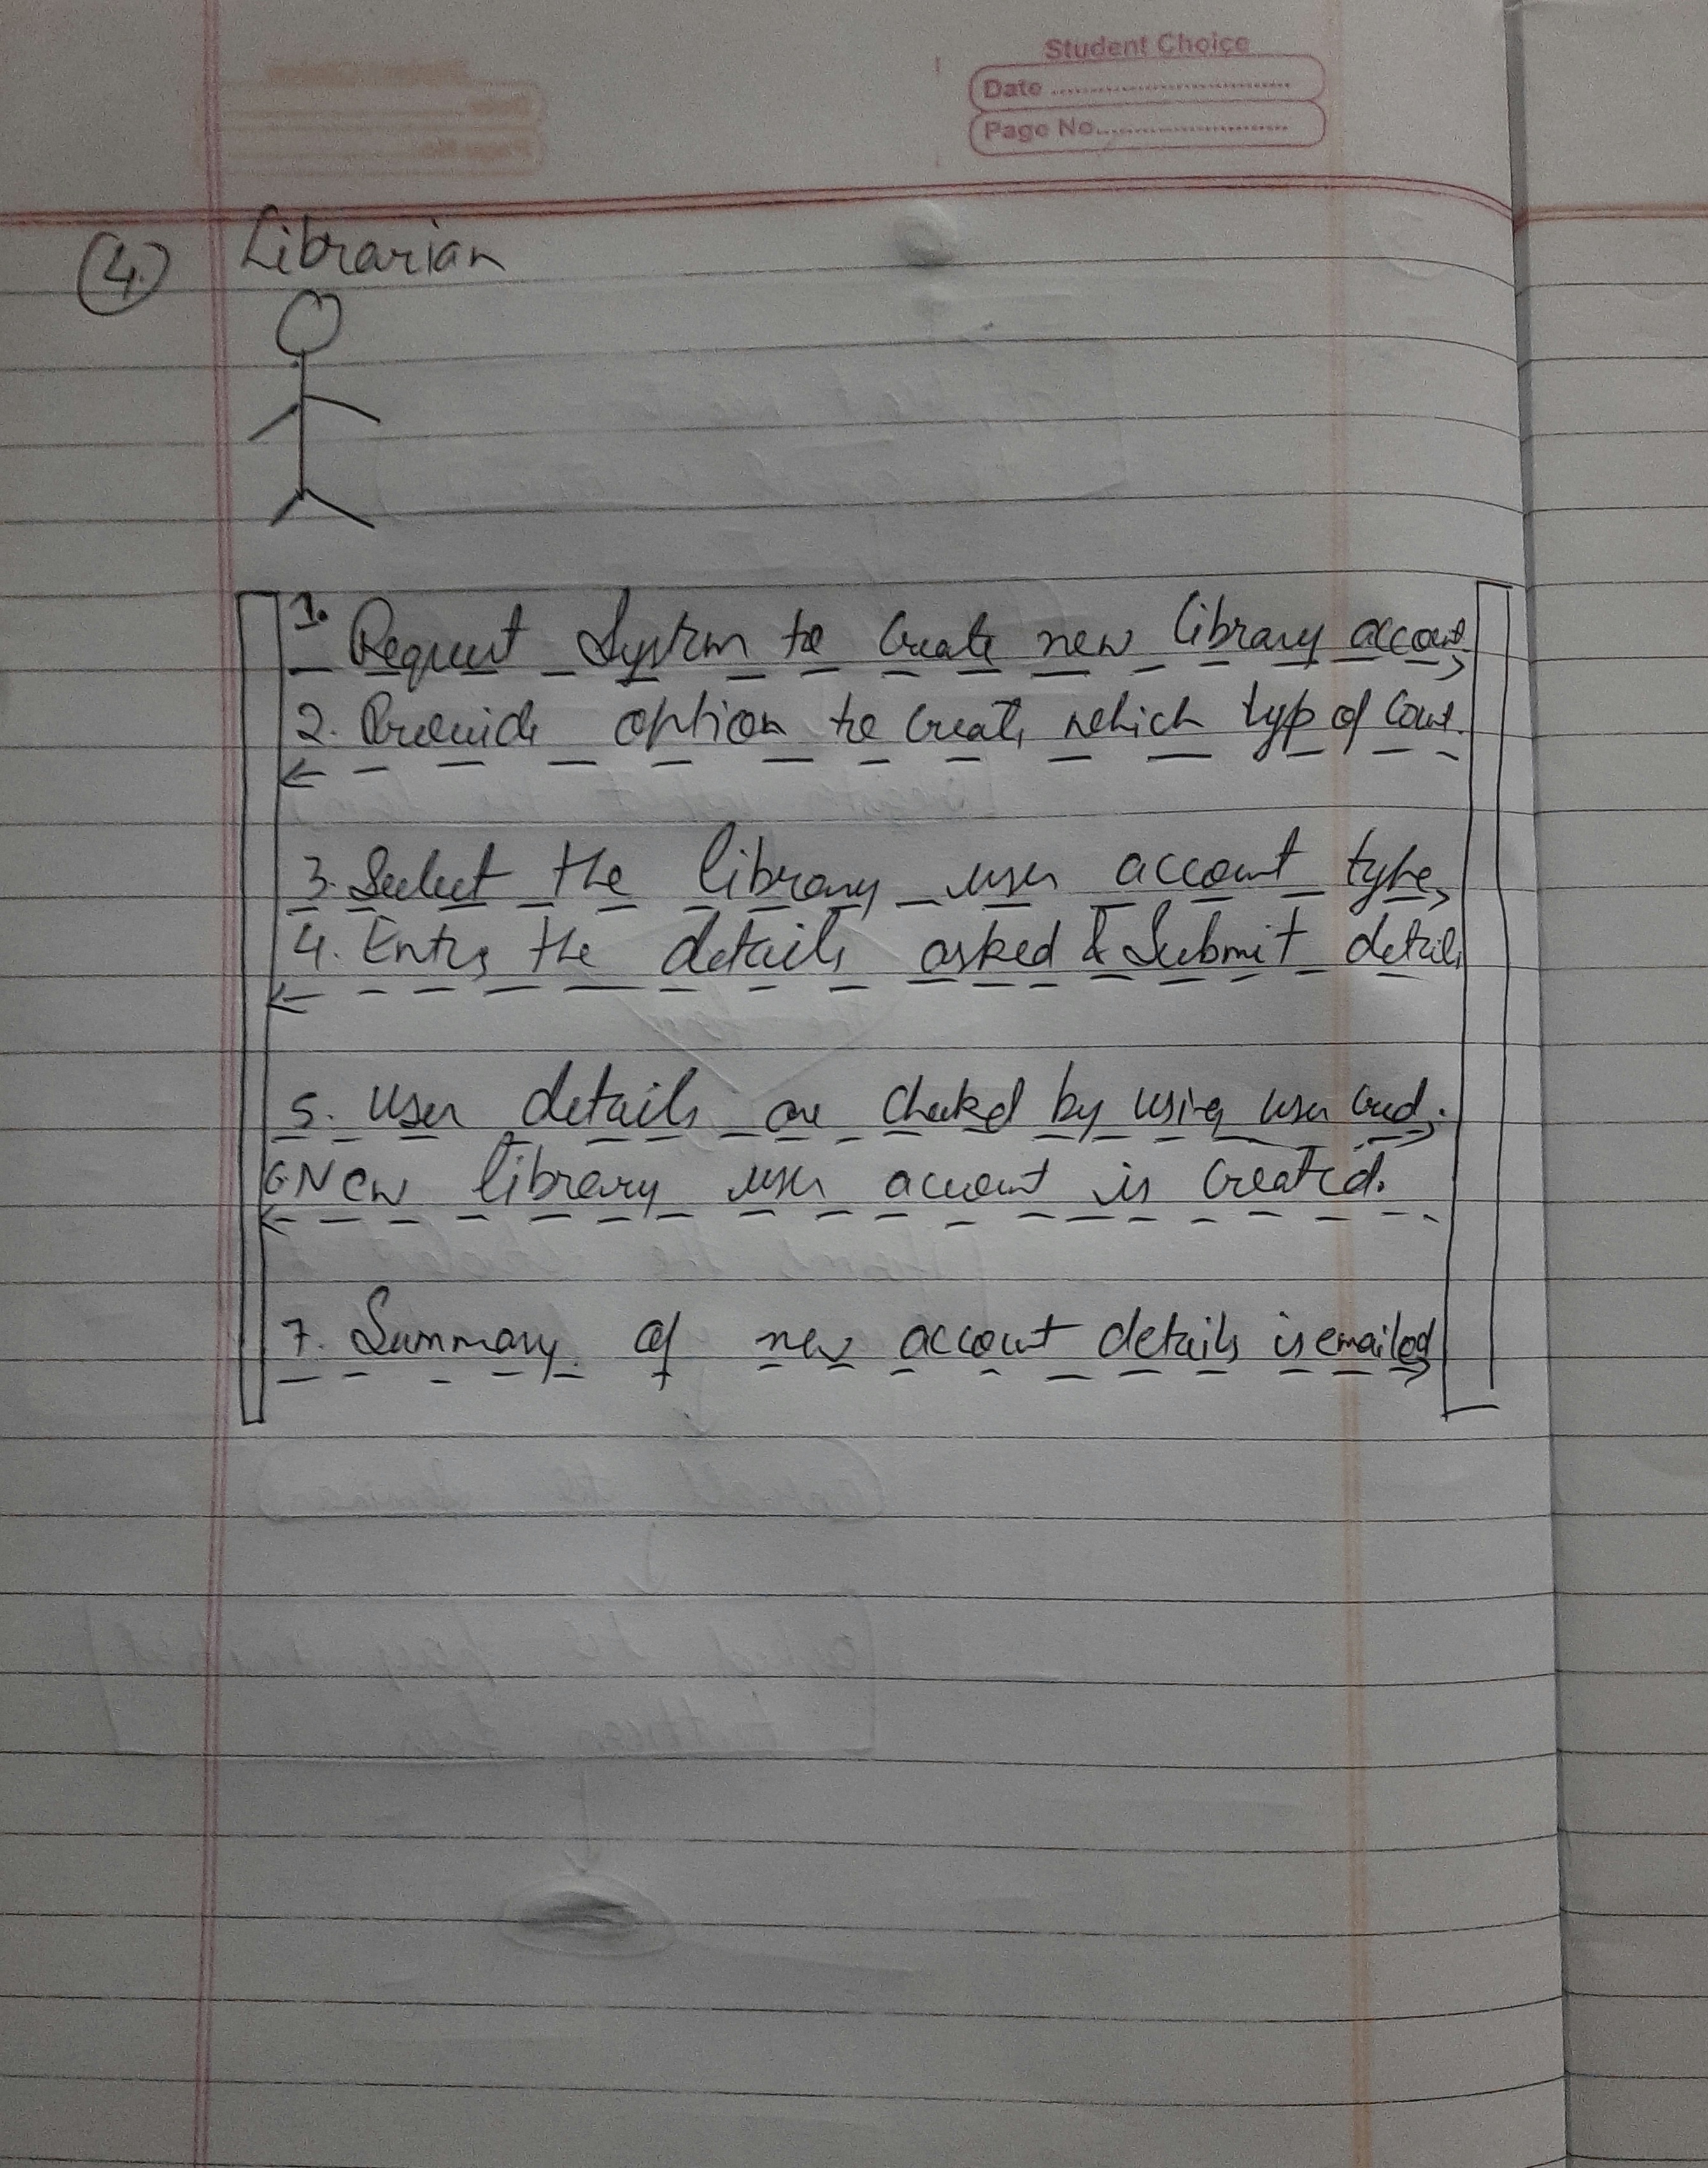 Student Choice
Date
Page No.
(4.) Librarian
1. Request System to Create new library account
2. Provide option to Create which type of
3. Select the library user account type
4. Enter the details asked & Submit details
5. User details are checked by using user cred.
6. New library user account is created.
7. Summary of new account details is emailed